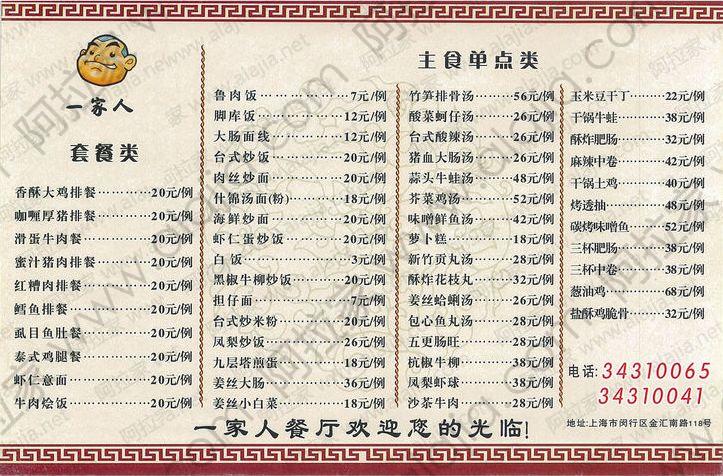 一家人
套餐类
香酥大鸡排餐………20元/例
咖喱厚猪排餐………20元/例
滑蛋牛肉餐…………20元/例
蜜汁猪肉排餐………20元/例
红糟肉排餐…………20元/例
鳕鱼排餐……………20元/例
虱目鱼肚餐…………20元/例
泰式鸡腿餐…………20元/例
虾仁意面……………20元/例
牛肉烩饭……………20元/例
主食单点类
鲁肉饭………………7元/例
脚库饭………………12元/例
大肠面线……………12元/例
台式炒饭……………20元/例
肉丝炒面……………20元/例
什锦汤面(粉)………18元/例
海鲜炒面……………20元/例
虾仁蛋炒饭…………20元/例
白饭…………………3元/例
黑椒牛柳炒饭………20元/例
担仔面………………7元/例
台式炒米粉…………20元/例
凤梨炒饭……………26元/例
九层塔煎蛋…………18元/例
姜丝大肠……………36元/例
姜丝小白菜…………18元/例
竹笋排骨汤…………56元/例
酸菜蚵仔汤…………26元/例
台式酸辣汤…………26元/例
猪血大肠汤…………26元/例
蒜头牛蛙汤…………48元/例
芥菜鸡汤……………52元/例
味噌鲜鱼汤…………42元/例
萝卜糕………………18元/例
新竹贡丸汤…………28元/例
酥炸花枝丸…………32元/例
姜丝蛤蜊汤…………26元/例
包心鱼丸汤…………28元/例
五更肠旺……………28元/例
杭椒牛柳……………38元/例
凤梨虾球……………38元/例
沙茶牛肉……………28元/例
玉米豆干丁…………22元/例
干锅牛蛙……………38元/例
酥炸肥肠……………32元/例
麻辣中卷……………42元/例
干锅土鸡……………40元/例
烤透抽………………48元/例
碳烤味噌鱼…………52元/例
三杯肥肠……………38元/例
三杯中卷……………38元/例
葱油鸡………………68元/例
盐酥鸡脆骨…………32元/例
电话:34310065
34310041
地址:上海市闵行区金汇南路118号
一家人餐厅欢迎您的光临!
阿拉家 www.alajia.net